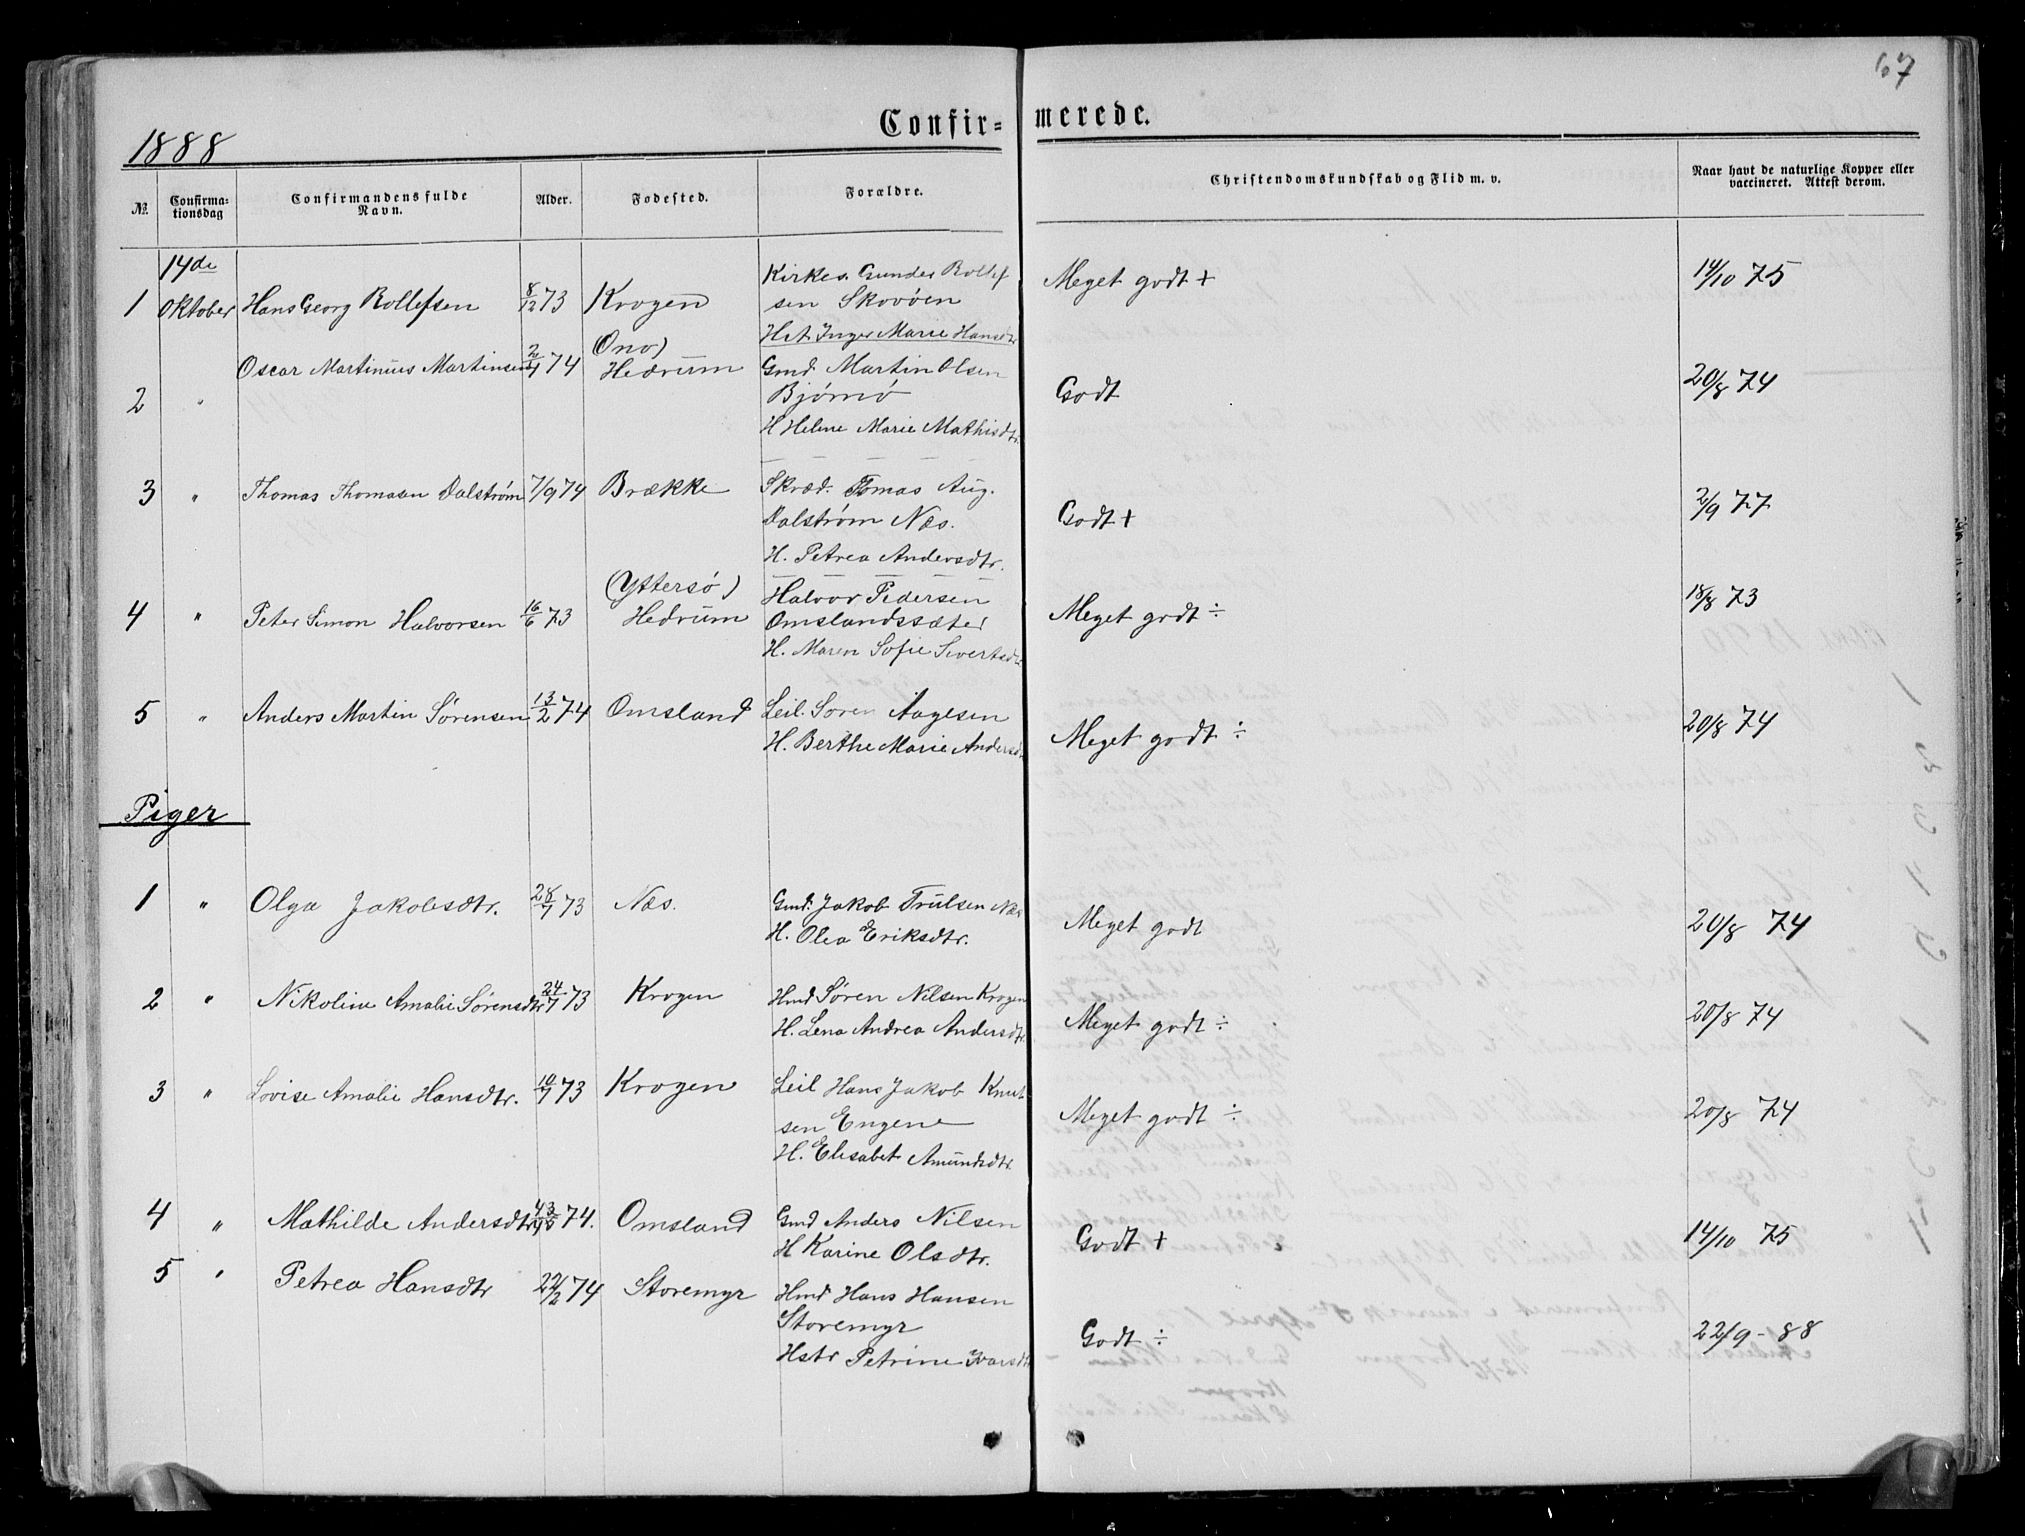 67
Confir- merede.
1888
№. Confirma-tionsdag Confirmandens fulde Navn. Alder. Fødested. Forældre. Christendomskundskab og Flid m. v. Naar havt de naturlige Kopper eller vaccineret. Attest derom.
14de Kirkes. Gunder Rollef
1 Oktober Hans Georg Rollefsen 8/12 73 Krogen sen Skovøen Meget godt + 14/10 75
Hst Inger Marie Hansdtr
Oscar Martinius Martinsen 74 Ono) Hedrum Gmd Martin Olsen
2 " Bjørnø Godt 20/8 74
H Helene Marie Mathisdtr.
3 " Thomas Thomasen Dalstrøm 7/9 74 Brække Skræd. Tomas Aug.
Dalstrøm Næs. Godt + 2/9 77
H. Petrea Andersdtr.
(Yttersø) Halvor Pedersen
4 " Peter Simon Halvorsen 16/6 73 Hedrum Omslandssæter Meget godt ÷ 18/8 73
H. Maren Sofie Sivertsdtr
5 " Anders Martin Sørensen 13/2 74 Omsland Leil. Søren Aagesen
H. Berthe Marie Andersdtr Meget godt ÷ 20/8 74
Piger
1 " Olga Jakobsdtr. 28/7 73 Næs. Gmd. Jakob Trulsen Næs
H. Olea Eriksdtr. Meget godt 20/8 74
2 " Nikoline Amalie Sørensdtr 24/7 73 Krogen Hmd Søren Nilsen Krogen
H. Lena Andrea Andersdtr. Meget godt ÷ 20/8 74
3 " Lovise Amalie Hansdtr. 10/7 73 Krogen Leil Hans Jakob Knut-
sen Engene Meget godt ÷ 20/8 74
H. Elisabet Amundsdtr.
4 " Mathilde Andersdtr 74. Omsland Gmd Anders Nilsen
H Karine Olsdtr. Godt + 14/10 75
5 " Petrea Hansdtr 22/2 74 Storemyr Hmd Hans Hansen
Storemyr Godt ÷ 22/9 - 88
Hstr Petrine Ivarsdtr